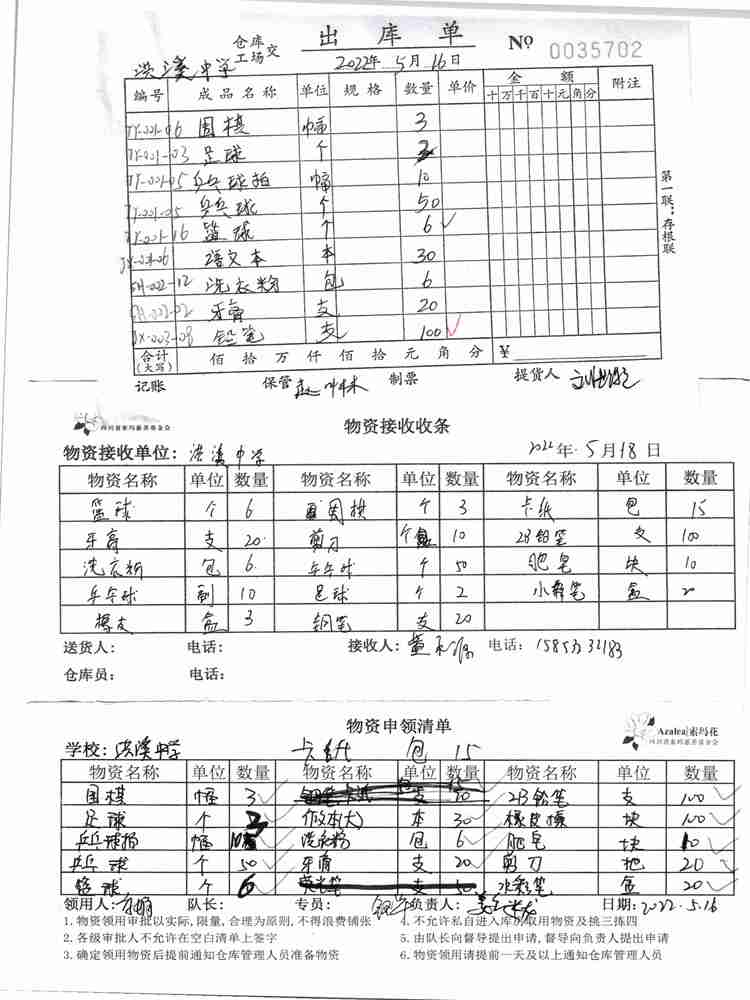 仓库
工场交
出库单
№ 0035702
洪溪中学
2022年5月16日
编号 成品名称 单位 规格 数量 单价 金额 附注
十万千百十元角分
06 围棋 幅 3
TY-001-03 足球 个 2
TY-001-05 乒乓球拍 幅 10
乒乓球 个 50
16 篮球 个 6
语文本 本 30
SH-002-12 洗衣粉 包 6
SH-002-02 牙膏 支 20
JX-003-08 铅笔 支 100
合计(大写) 佰拾万仟佰拾元角分 ¥
第一联:存根联
记账 保管 制票 提货人
四川省索玛慈善基金会
物资接收收条
物资接收单位: 洪溪中学 2022年5月18日
物资名称 单位 数量 物资名称 单位 数量 物资名称 单位 数量
篮球 个 6 围棋 个 3 卡纸 包 15
牙膏 支 20 剪刀 10 2B铅笔 支 100
洗衣粉 包 6 乒乓球 个 50 肥皂 块 10
乒乓球 副 10 足球 个 2 盒
盒 3 钢笔 支 20
送货人: 电话: 接收人: 电话:
仓库员: 电话:
物资申领清单
Azalea|索玛花
四川省索玛慈善基金会
学校: 洪溪中学 卡纸 包 15
物资名称 单位 数量 物资名称 单位 数量 物资名称 单位 数量
围棋 幅 3 2B铅笔 支 100
足球 个 2 作文本(大) 本 30 块 100
乒乓球拍 幅 10 洗衣粉 包 6 肥皂 块 10
乒乓球 个 50 牙膏 支 20 剪刀 把 20
篮球 个 6 水彩笔 盒 20
领用人: 队长: 专员: 负责人: 日期: 2022.5.16
1.物资领用审批以实际,限量,合理为原则,不得浪费铺张 4.不允许私自进入库房取用物资及挑三拣四
2.各级审批人不允许在空白清单上签字 5.由队长向督导提出申请,督导向负责人提出申请
3.确定领用物资后提前通知仓库管理人员准备物资 6.物资领用请提前一天及以上通知仓库管理人员